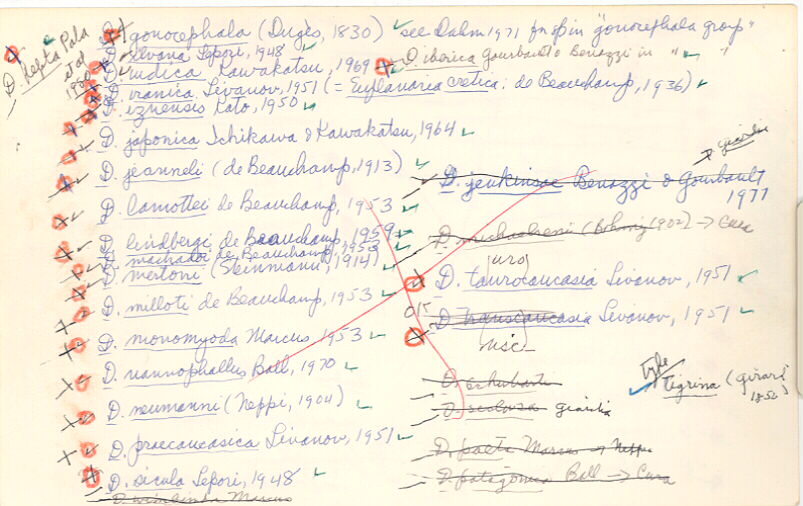 D. gonocephala (Dugès, 1830) see Dahm 1971 for spp in "gonocephala group"
D. ilvana Lepori, 1948
D. indica Kawakatsu, 1969
D. iberica Gourbault & Benazzi in " "
D. iranica Livanov, 1951 (= Euplanaria cretica: de Beauchamp, 1936)
D. iznensis Kato, 1950
D. japonica Ichikawa & Kawakatsu, 1964
D. jeanneli (de Beauchamp, 1913)
D. lamottei de Beauchamp, 1953
D. lindbergi de Beauchamp, 1959
D. machadoi de Beauchamp, 1953
D. mertoni (Steinmann, 1914)
D. milloti de Beauchamp, 1953
D. monomyoda Marcus 1953
D. nannophallus Ball, 1970
D. neumanni (Neppi, 1904)
D. praecaucasica Livanov, 1951
D. sicula Lepori, 1948
Marcus
D. Nepta Pala
et al
1980
Girardia
D. jenkinsae Benazzi & Gourbault
1977
D. michaelsenii (Böhmig 1902) → Cura
D. taurocaucasia Livanov, 1951
D. transcaucasia Livanov, 1951
D. schubarti
D. seclusa girardia
type
tigrina (Girard
1850)
D. paeta Marcus → Neppia
D. patagonica Ball → Cura